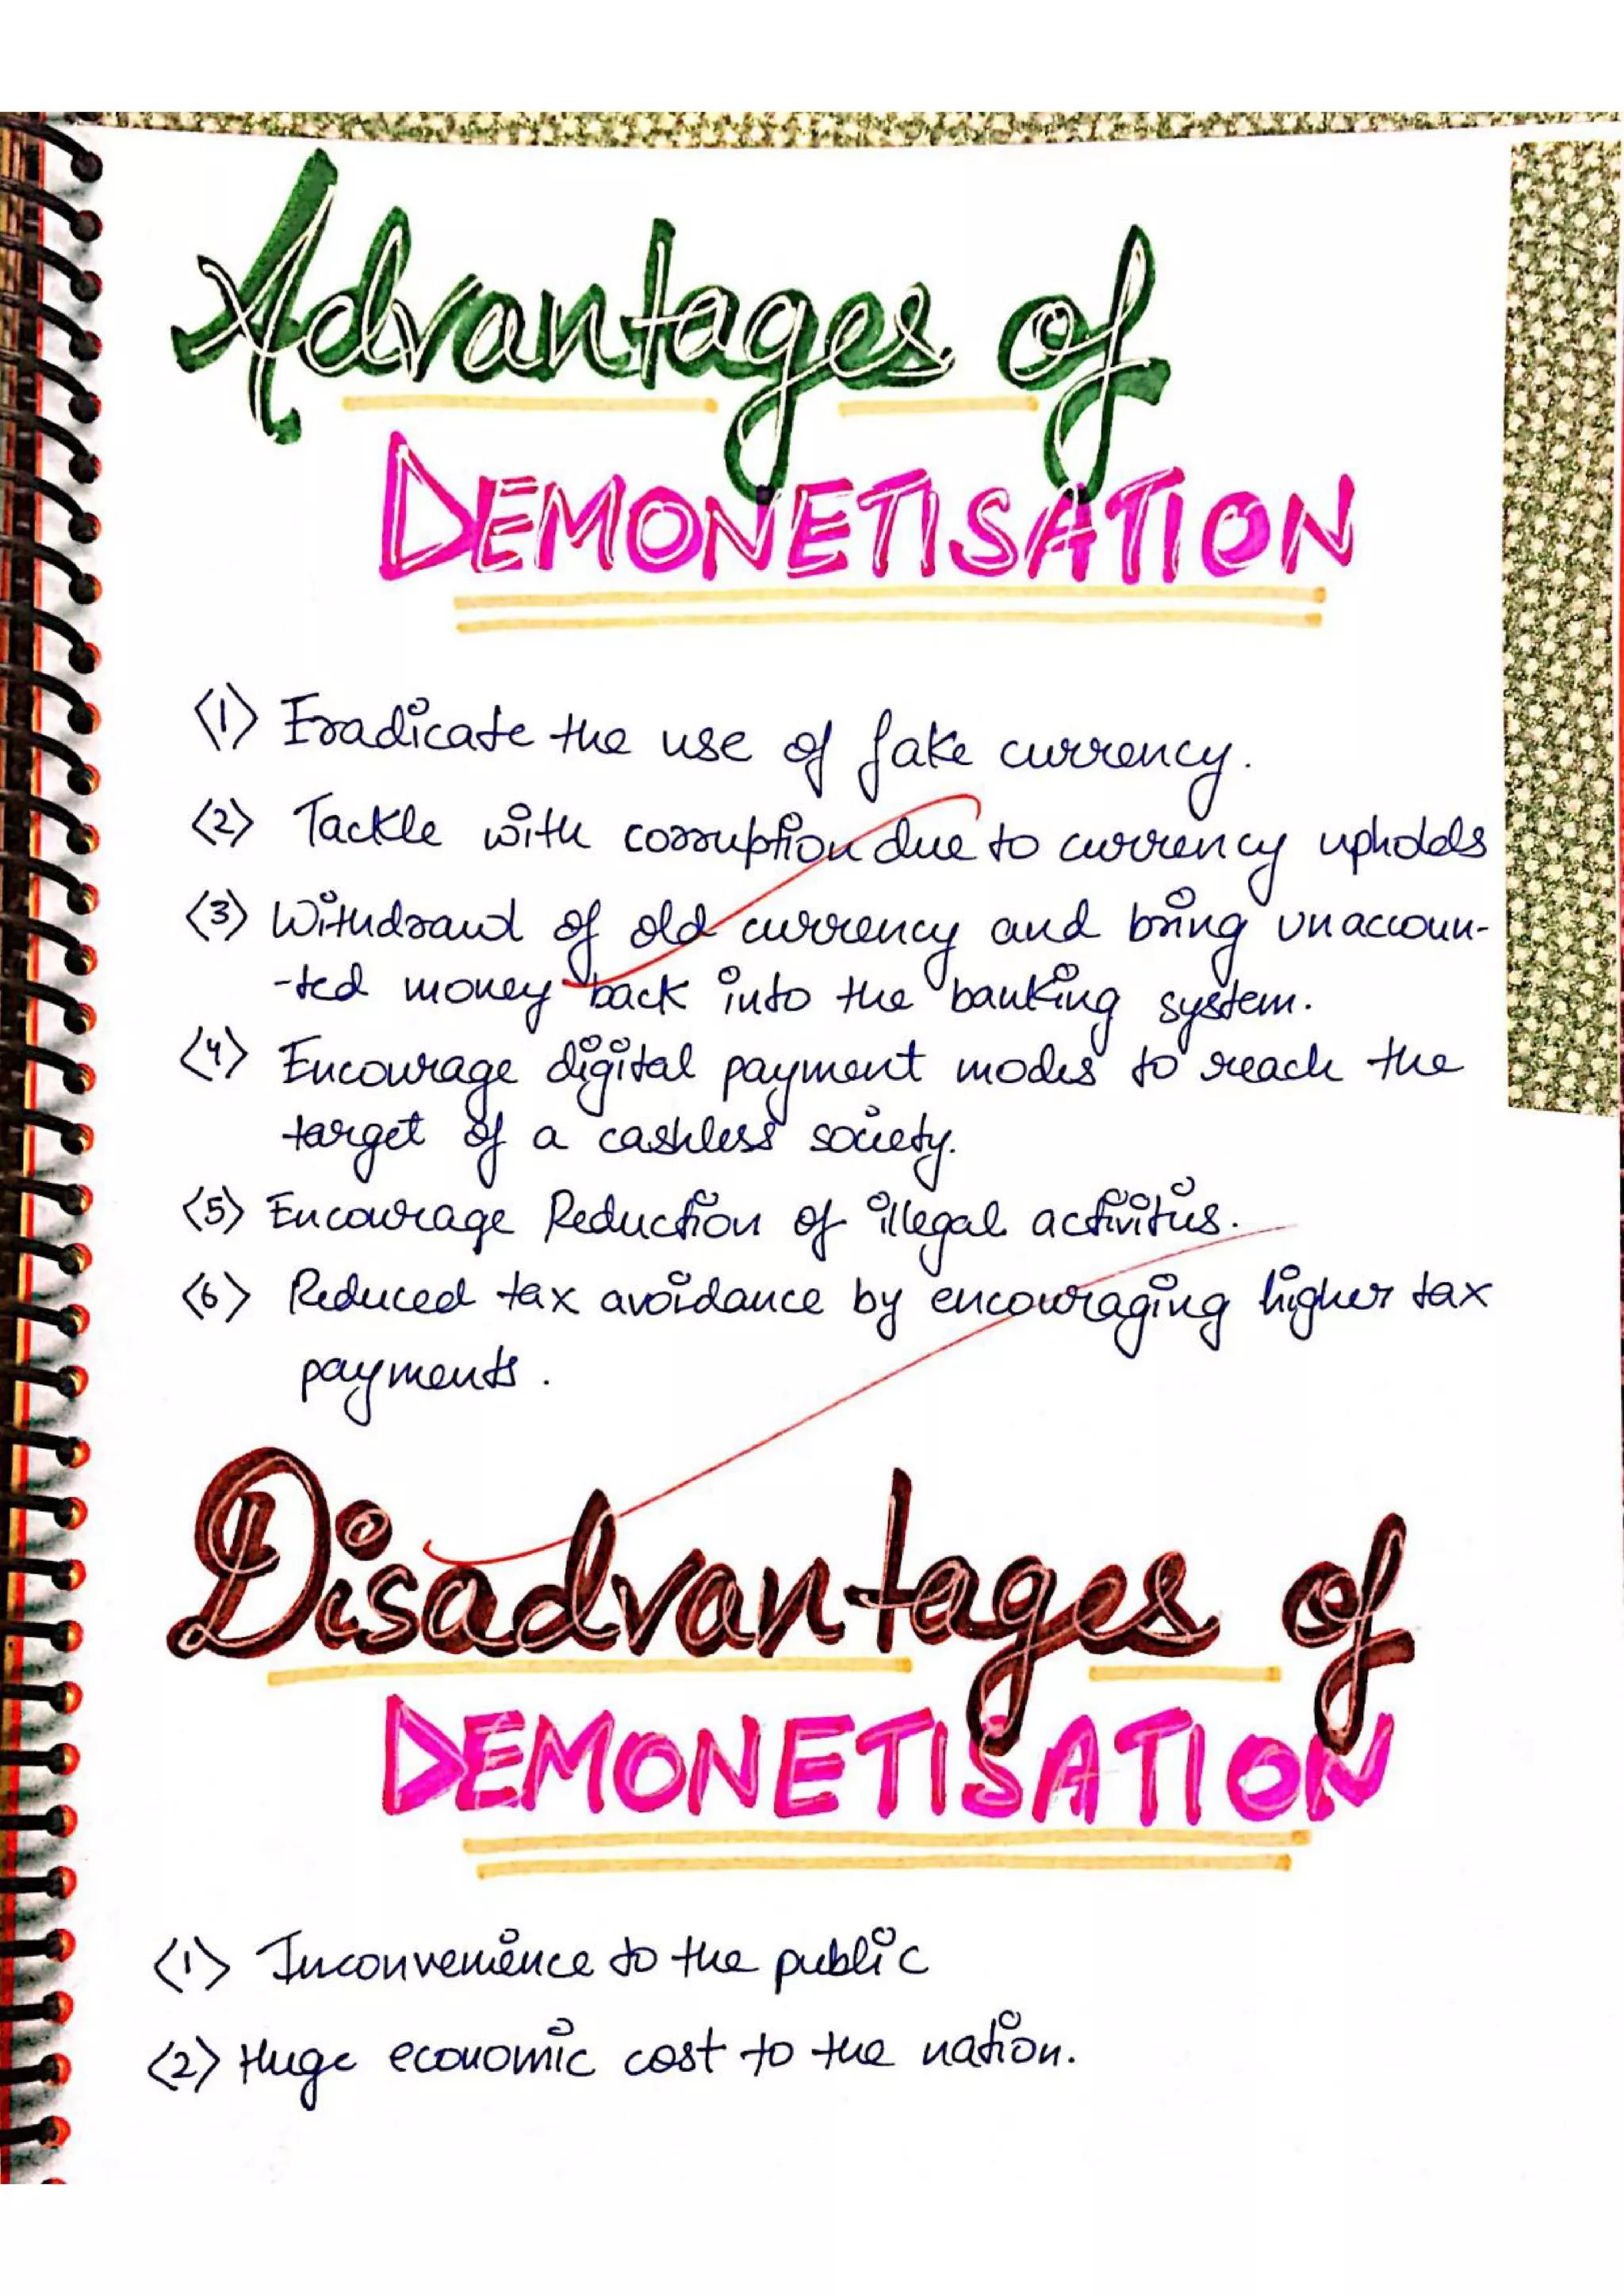 Advantages of
DEMONETISATION
<1> Eradicate the use of fake currency.
<2> Tackle with corruption due to currency upholds
<3> Withdrawl of old currency and bring unaccoun-
-ted money back into the banking system.
<4> Encourage digital payment modes to reach the
target of a cashless society.
<5> Encourage Reduction of illegal activities.
<6> Reduced tax avoidance by encouraging higher tax
payments.
Disadvantages of
DEMONETISATION
<1> Inconvenience to the public
<2> Huge economic cost to the nation.